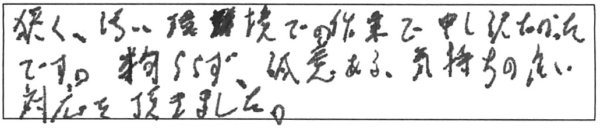 狭く、汚い環境での作業で申し訳なかった
です。拘らず、誠意ある、気持ちの良い
対応を頂きました。